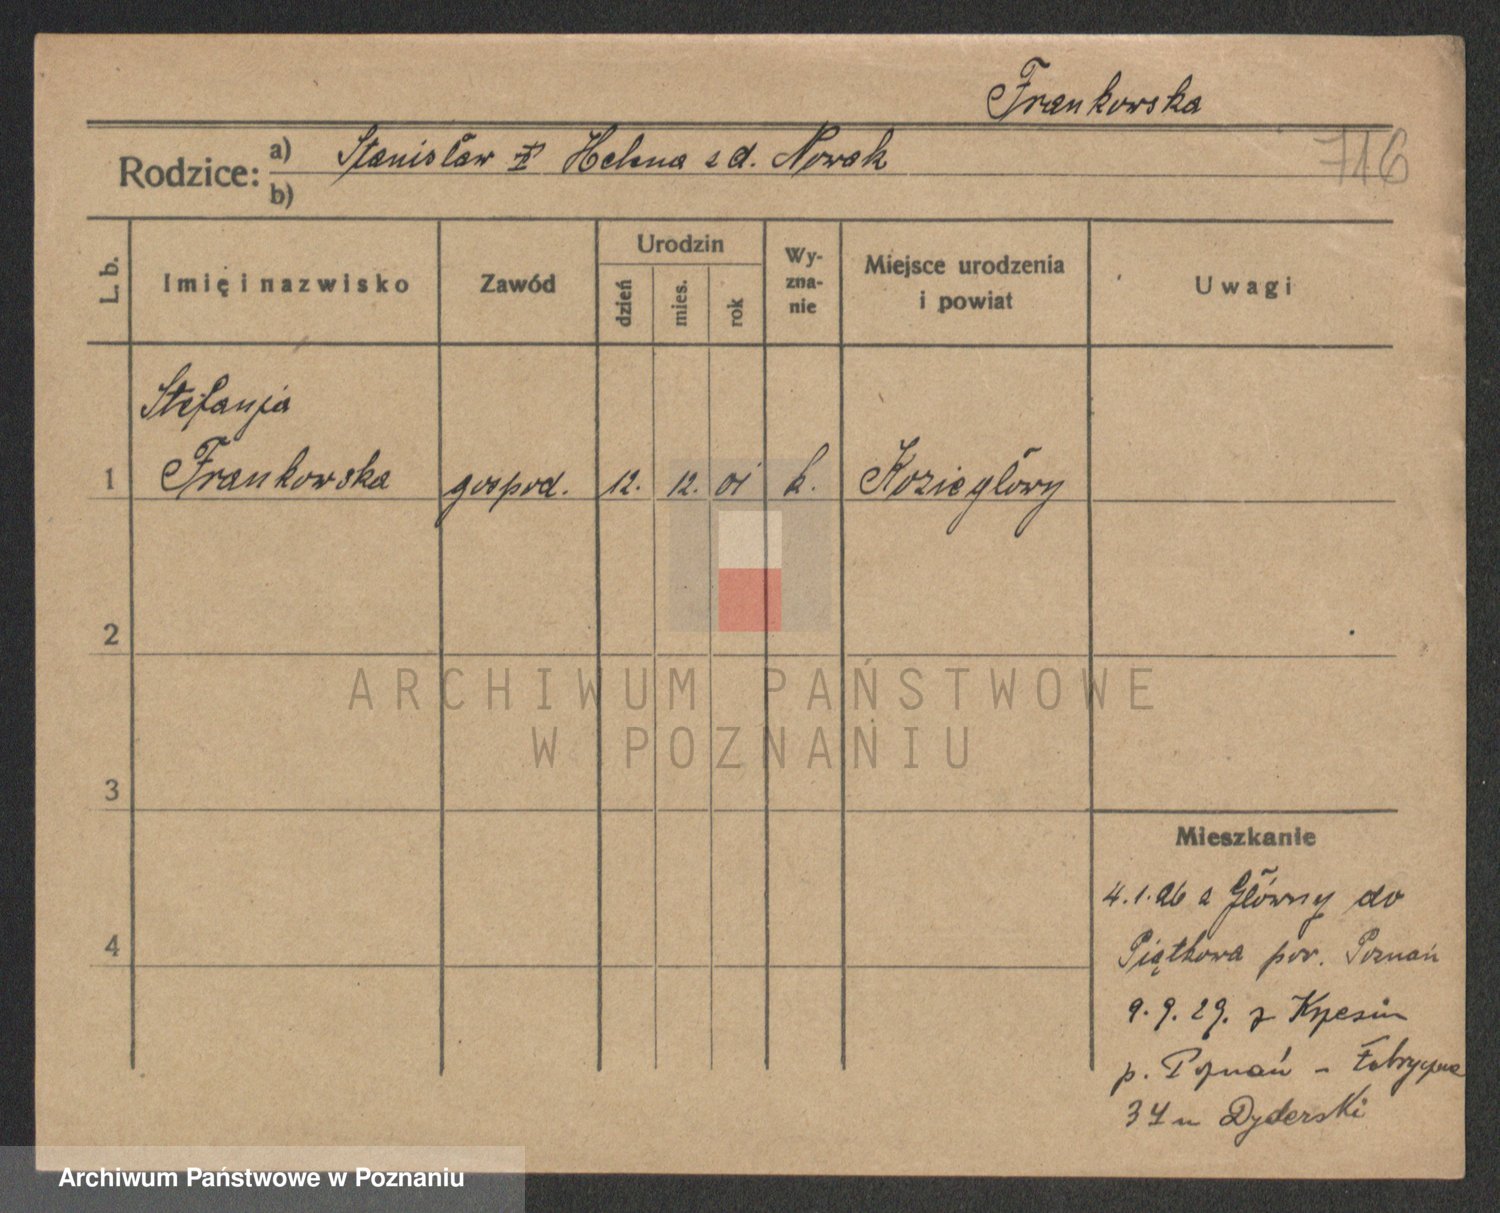 Frankowska
716
Rodzice: a) Stanisław Helena z d. Nowak
b)
L. b.
Imię i nazwisko
Zawód
Urodzin
dzień
mies.
rok
Wy-
zna-
nie
Miejsce urodzenia
i powiat
Uwagi
Stefanja
1 Frankowska gospod. 12. 12. 01 k. Koziegłowy
2
ARCHIWUM PAŃSTWOWE
W POZNANIU
3
Mieszkanie
4.1.26 z Główny do
4
Piątkowa pow. Poznań
9.9.29. z
p. Poznań - Fabryczna
34 u Dyderski
Archiwum Państwowe w Poznaniu